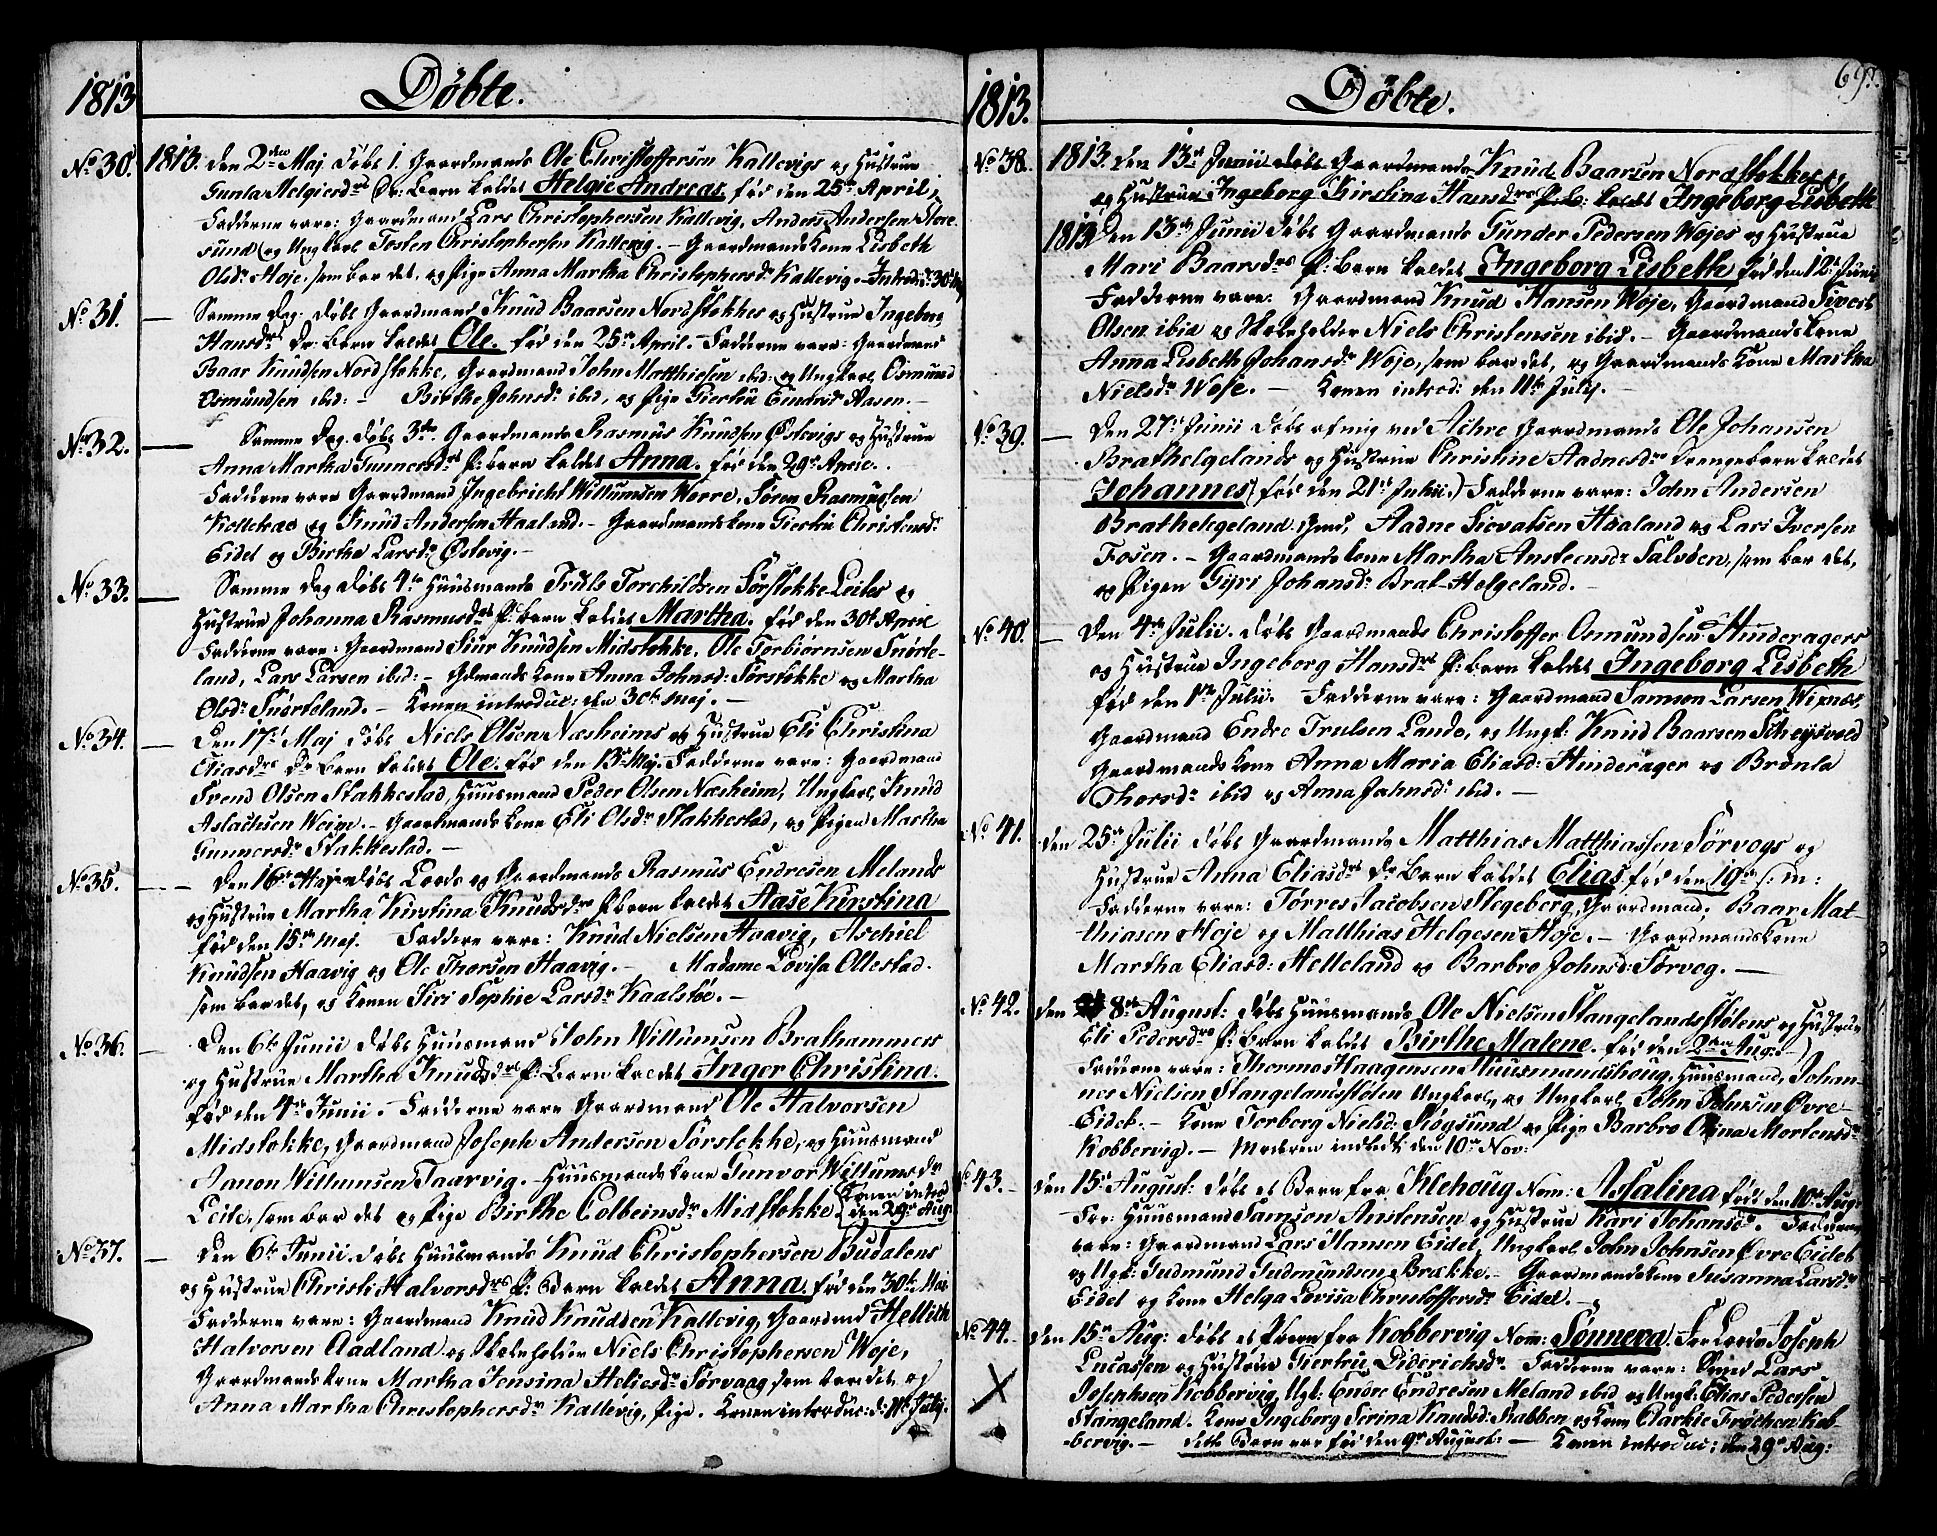 1813
Döbte.
No 30. 1813. den 2den Maj döbt 1. Gaardmands Ole Christoffersen Kallevigs og Hustrue
Gunla Helgiesdrs Dr: Barn kaldet Helgie Andreas, fød den 25de April;
Fadderne vare: Gaardmand Lars Christophersen Kallevig, Anders Andersen Store-
sund og Ungkarl Tosten Christophersen Kallevig. – Gaardmandskone Lisbeth
Olsdr Høje, som bar det, og Pige Anna Martha Christophersdr Kallevig. – Introd: d: 30te Maj
No 31. – Samme Dag döbt Gaardmand Knud Baarsen Nordstokkes og Hustrue Ingeborg
Hansdrs Dr: Barn kaldet Ole. fød den 25de April. – Fadderne vare: Gaardmand
Baar Knudsen Nordstokke, Gaardmand John Matthiesen ibid: og Ungkarl Osmund
Osmundsen ibid: – Birthe Johnsdr ibid, og Pige Giertru Endresdr Aasen. –
No 32. – Samme Dag döbt 3die Gaardmands Rasmus Knudsen Østevigs og Hustrue
Anna Martha Gunnersdrs P: barn kaldet Anna. fød den 29de April.
Fadderne vare Gaardmand Ingebricht Willumsen Worre, Søren Rasmussen
og Knud Andersen Haaland. – Gaardmandskone Giertru Christensdr
Eidet og Birtha Larsdr Østevig. –
No 33. – Samme Dag döbt 4de Huusmands Truls Torchildsen Sørstokke-Leites og
Hustrue Johanna Rasmusdrs P: barn kaldet Martha. fød den 30te April
Fadderne vare: Gaardmand Siur Knudsen Midstokke, Ole Torbiørnsen Snørte-
land, Lars Larsen ibid: – Gdmands Kone Anna Johnsd: Sørstokke og Martha
Olsdr Snørteland. – Konen introduc: den 30te Maj. –
No 34. – Den 17de Maj döbt Niels Olsen Næsheims og Hustrue Eli Christina
Eliasdrs Dr Barn kaldet Ole. fød den 13de Maj. Fadderne vare: Gaardmand
Svend Olsen Stakkestad, Huusmand Peder Olsen Næsheim, Ungkarl Knud
Aslachsen – Gaardmands Kone Eli Olsdr Stakkestad, og Pigen Martha
Gunnersdr Stakkestad. –
No 35. – Den 16de Maj döbt Lods og Gaardmands Rasmus Endresen Melands
og Hustrue Martha Kirstina Knudsdrs P barn kaldet Aase Kirstina
fød den 15de Maj. Faddere vare: Knud Nielsen Haavig, Aschiel
Knudsen Haavig og Ole Thorsen Haavig. – Madame Lovisa Ollestad.
som bar det, og Konen Siri Sophie Larsdr Kaalstøe. –
No 36. – Den 6te Junii döbt Huusmands John Willumsen Brathammers
og Hustrue Martha Knudsdrs P: Barn kaldet Inger Christina.
fød den 4de Junii. – Fadderne vare Gaardmand Ole Halvorsen
Midstokke, Gaardmand Joseph Andersen Sørstokke, og Huusmand
Willumsen Taarvig. – Huusmandskone Gunvor Willumsdr
Leite, som bar det og Pige Birthe Colbeinsdr Midstokke (Konen introd
den 29de Aug.
No 37. – Den 6te Junii döbt Huusmands Knud Christophersen Budalens
og Hustrue Christi Halvorsdrs P: Barn kaldet Anna. fød den 30te Mai
Fadderne vare: Gaardmand Knud Knudsen Kallevig, Gaardmd Hellik
Halvorsen Aadland og Skoleholder Niels Christophersen Woje,
Gaardmandskone Martha Jensina Heliesdr Sørvaag som bar det og
Anna Martha Christophersdr Kallevig, Pige. Konen introduc: d: 11te July.
1813.
Döbte.
69
No 38. 1813. den 13de Junii döbt Gaardmands Knud Baarsen Nordstokkes og
og Hustrue Ingeborg Kirstina Hansdrs P: b: kaldet Ingeborg Lisbeth
1813 Den 13de Junii döbt Gaardmands Gunder Pedersen Wojes og Hustrue
Mari Baarsdrs P: barn kaldet Ingeborg Lisbeth, fød den 12te Junii
Fadderne vare: Gaardmand Knud Hansen Woje, Gaardmand Sivert
Olsen ibid og Skoleholder Niels Christensen ibid. – Gaardmandskone
Anna Lisbeth Johansdr Woje, som bar det, og Gaardmands Kone Martha
Nielsdr Woje. – Konen introd: den 11te July. –
No 39. – Den 27de Junii döbt af mig ved Achre Gaardmands Ole Johansen
Brathelgelands og Hustrue Christine Aadnesdrs Drengebarn kaldet
Johannes (fød den 21de Junii.) Fadderne vare: John Andersen
Brathelgeland, Aadne Siovatsen Haaland og Lars Iversen
Fosen. – Gaardmandskone Martha Ansteensdr Salvøen, som bar det,
og Pigen Gyri Johansdr Brat-Helgeland. –
No 40. – Den 4de Julii. döbt Gaardmands Christoffer Osmundsen Hinderagers
og Hustrue Ingeborg Hansdrs P: barn kaldet Ingeborg Lisbeth
fød den 1ste Julii. Fadderne vare: Gaardmand Samson Larsen Wixnæs,
Gaardmand Endre Trulsen Lande, og Ungk: Knud Baarsen Scheysvold
Gaardmands Kone Anna Maria Eliasd: Hinderager og Brønla
Thorsdr ibid og Anna Jahnsdr ibid. –
No 41. den 25de Julii döbt Gaardmands Matthias Matthiassen Sørvogs og
Hustrue Anna Eliasdrs Dr Barn kaldet Elias fød den 19de s: m:
Fadderne vare: Tørres Jacobsen Stegeberg, Gaardmand, Baar Mat-
thiasen Høje og Matthias Helgesen Høje. – Gaardmandskone
Martha Eliasd: Helleland og Barbro Johnsd: Sørvog. –
No 42. den 8de August: döbt Huusmands Ole Nielsen Stangelandsstølens og Hustrue
Eli Pedersdrs P: Barn kaldet Birthe Malene. fød den 2den Aug: –
Fadderne vare: Thormo Haagensen Huusmandshoug, Huusmand, Johan-
nes Nielsen Stangelandsstølen Ungkarl, og Ungkarl John Johnsen Øvre-
Eidet. – Kone Torberg Nielsd: Høgsund og Pige Barbro Olina Mortensdr
Kobbervig. – Moderen indledt: den 10de Nov:
No 43. – den 15de August: döbt et Barn fra Klehoug Nom: Assalina født den 10de Aug:
For: Huusmand Samson Anstensen og Hustrue Kari Johansdr. Fadderne
vare: Gaardmand Lars Hansen Eidet, Ungkarl John Johnsen Øvre Eidet
og Ugk: Gudmund Gudmundsen Brække. – Gaardmandskone Susanna Larsdr
Eidet og Kone Helga Lovisa Christoffersdr Eidet. –
No 44. – den 15de Aug: döbt et P barn fra Kobbervig Nom: Sønneva. For: Lods Joseph
Lucassen og Hustrue Giertru Diderichsdr. Fadderne vare: Lars
Josephsen Kobbervig, Ugk: Endre Endresen Meland ibid og Ungk: Elias Pedersen
Stangeland. Kone Ingeborg Serina Knudsd: Stabben og Kone Clarkie Trøchen Kob-
bervig. – dette Barn var fød den 9de August: – Konen introduc: den 29de Aug: